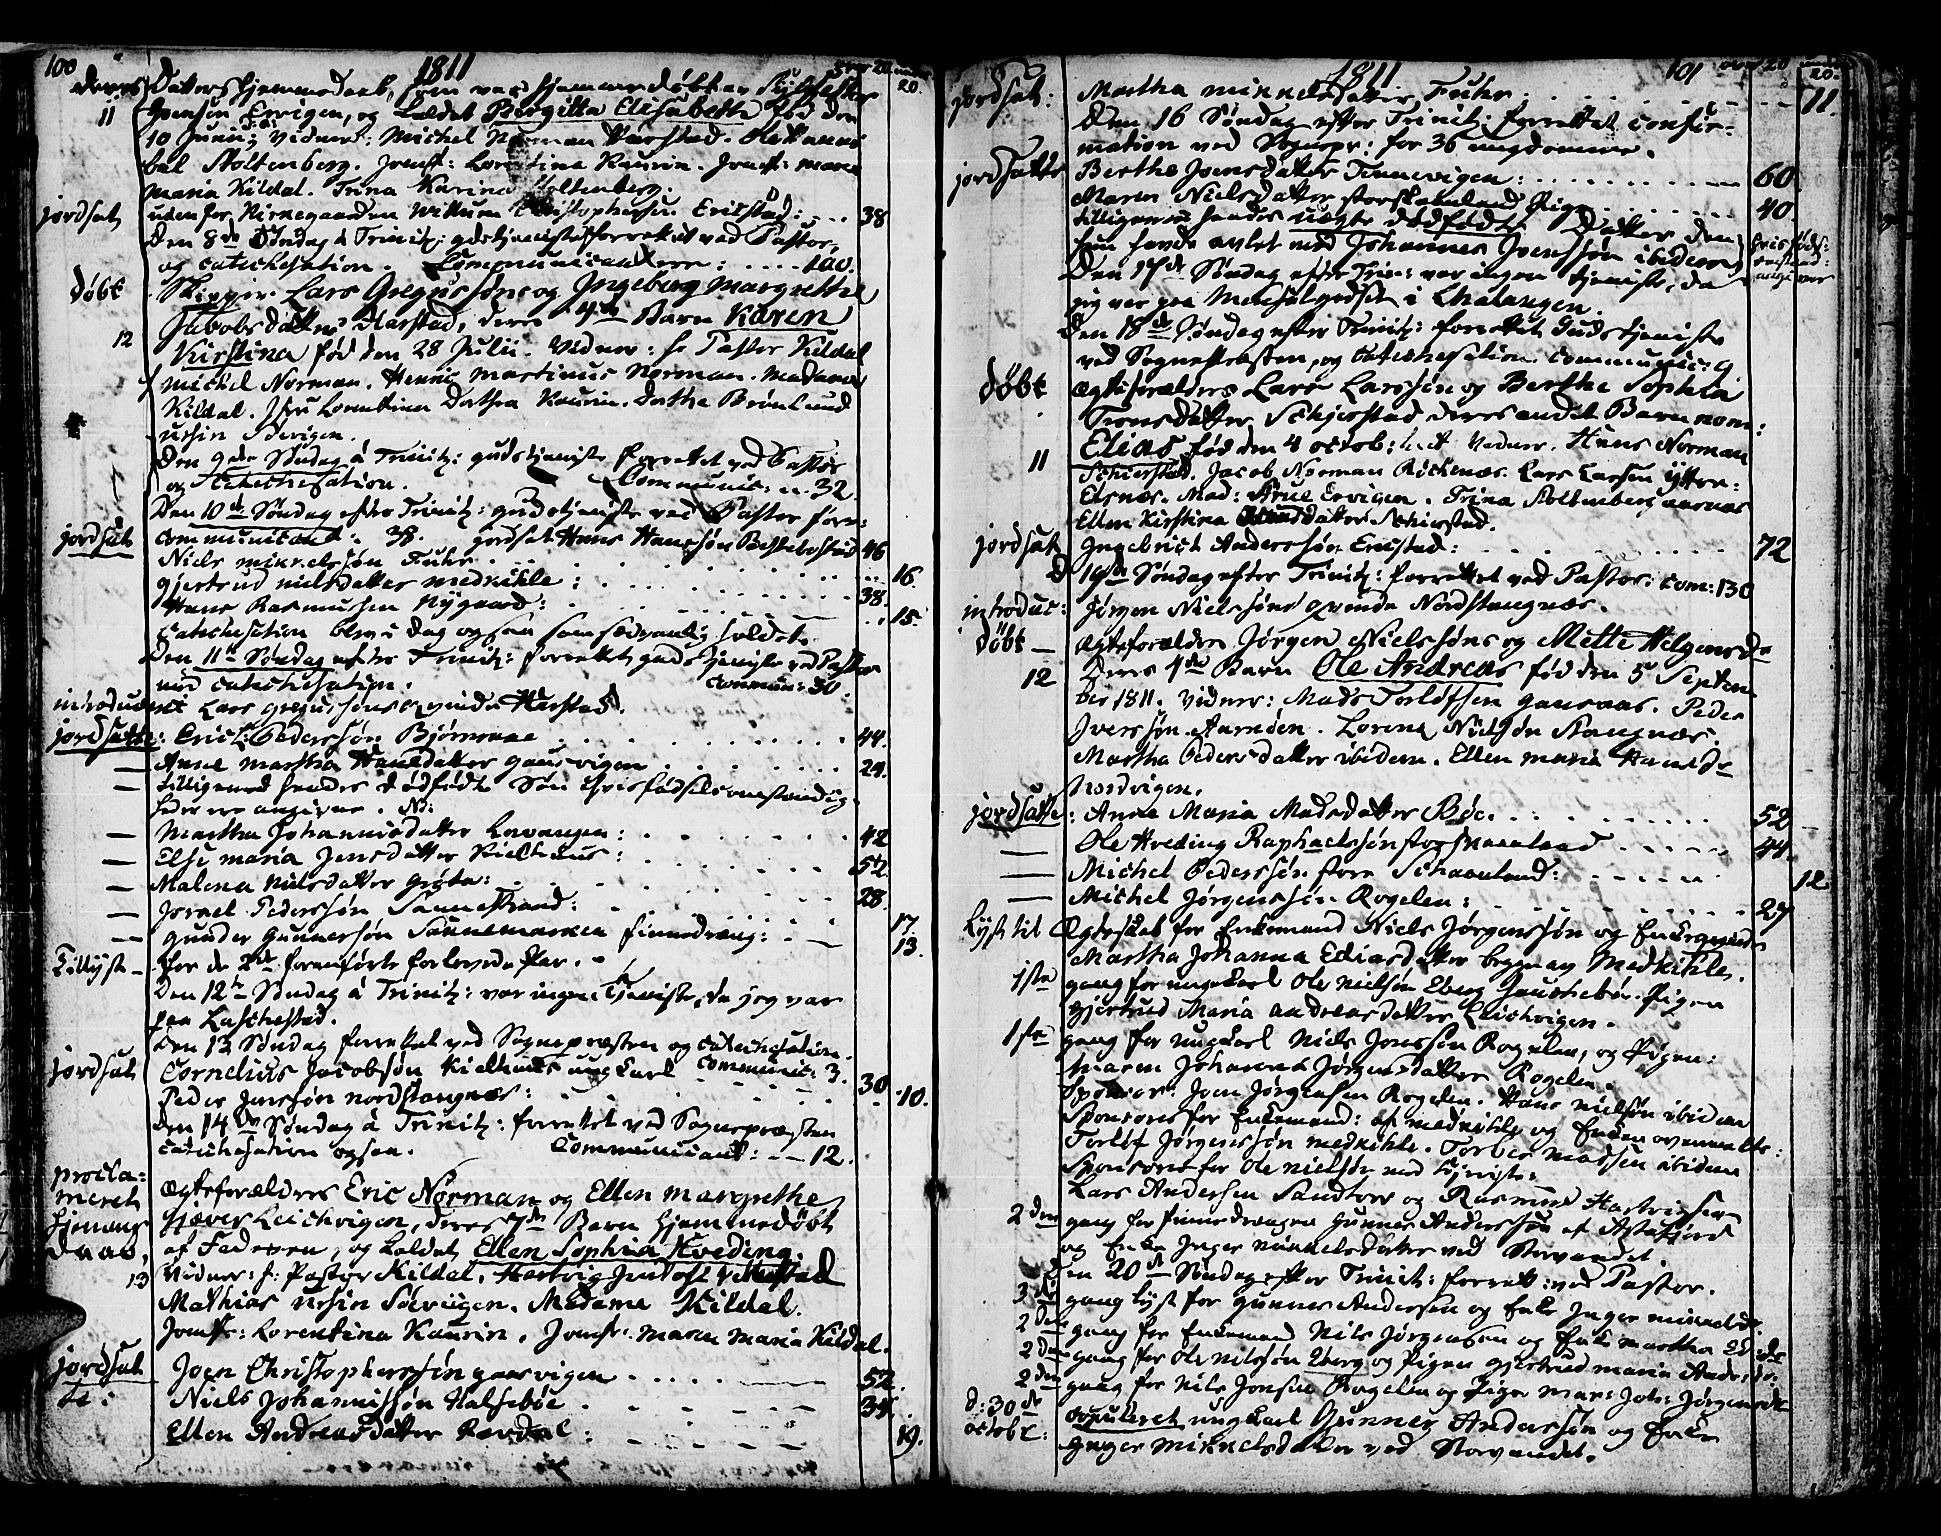 100
1811
over 20. under 20.
deres Datters hjemmedaab, som var hjemmedøbt av
11 Jensen Ervigen, og kaldet Birgitta Elisabeth fød den
10 Junii Vidner: Michel Norman Harstad.
Stoltenberg. Jomf: Lorentina Kaurin. Jomf: Maren
Maria Kildal. Trina Karina Stoltenberg.
jordsat udenfor Kirkegaarden Willum Christophersen Erickstad: 38
Den 8de Søndag à Trinit: gudstjeniste forrettet ved Pastor
og catechisation. Communicantere: .... 100.
døbt Skipper Lars Gregussøns og Ingeberg Margrethe
Jakobsdatters Harstad, deres 4de Barn Karen
12 Kirstina fød den 28 Julii. Vidner: Hr Pastor Kildal
Michel Norman. Henric Martinus Norman. Madame
Kildal. Jfru Lorentina Dorthea Kaurin. Dorthe Brønlund
Ursin Bervigen.
Den 9de Søndag à Trinit: gudstjeniste forrettet ved Pastor
og Catechisation. Communic: .. 32.
Den 10de Søndag efter Trinit: gudstjeniste ved Pastor forr:
jordsat communicant. 38. jordsat Hans Hanssøn 46
Niels Mikkelssøn Fuhr ... 16.
Gjertrud Nielsdatter Medkihle: 38.
Hans Rasmussen Nygaard: 15.
Catechisation blev i dag ogsaa som sædvanlig holdet.
Den 11te Søndag efter Trinit: forrettet gudstjeniste ved Pastor
med catechisation. Commun: 30.
introduceret Lars Gregussøns qvinde Harstad.
jordsatte: Erich Pederssøn Bjørnraae 44.
— Anne Martha Hansdatter Gausvigen 24.
— tilligemed hendes dødfødte Søn hvis fødselsomstændig-
heder ere angivne. Nb:
— Martha Johannisdatter Lavangen: 42
— Else Maria Jensdatter Kielhuus: 52.
— Malena Nilsdatter Grøta: 28.
— Jorael Pederssøn Sannestrand: 17.
— Gunder Gunnersøn Sannemarken Finnedreng: 13.
Tillyst — for de 2de foranførte forlovede Par.
Den 12te Søndag à Trinit: var ingen Tjeniste, da jeg var
paa Laschestad.
Den 13 Søndag forrettet ved Sognepræsten og catechisation.
jordsat Cornelius Jacobsøn Kielhuus ungkarl Communic: 3. 30
Peder Jenssøn Nordstangnæs: 10.
Den 14de Søndag à Trinit: forrettet ved Sognepræsten
catechisation ogsaa. Communicant: — 12.
procla-
meret
hjemme
daab,
Ægteforældres Eric Norman og Ellen Margrethe
Gjæver Leichvigen, deres 7de Barn hjemmedøbt
af Faderen, og kaldet Ellen Sophia Hveding.
13 Vidner: Hr: Pastor Kildal. Hartvig Jentoft
Mathias Ursin Sørvigen. Madame Kildal.
Jomfr: Lorentina Kaurin. Jomfr: Maren Maria Kildal.
jordsat
te:
Joen Christopherssøn Gausvigen ..... 52.
Niels Johannissøn Halsebøe 34.
Ellen Andreasdatter 19.
1811 101 over 20 under 20.
jordsat: Martha Mikkelsdatter Fuhr 11.
Den 16 Søndag efter Trinit: forrettet confir-
mation ved Sognepr: for 36 ungdomme.
jordsatte Berthe Joensdatter Tennevigen: 60.
Maren Nielsdatter Storskaaland Pige 40.
tilligemed hendes uægte dødfødte Datter den
hun havde avlet med Johannes Joenssøn ibidem
hvis føds:
omstænd:
angiver
Den 17de Søndag efter Trin: var ingen tjeniste, da
jeg var paa Mensalgodset i Chalangen.
Den 18de Søndag efter Trinit: forrettet Guds tjeniste
ved Sognepræsten, og catechisation. communic: 9
døbt Ægteforælders Lars Larssøn og Berthe Sophia
Tronsdatter Schjerstad deres andet Barn nom:
Elias, fød den 4 octob: h.A Vidner. Hans Norman
11 Schierstad. Jacob Norman Richenæs. Lars Larsen Ytter:
Elsnæs. Mad: Ervigen. Trina Stoltenberg
Ellen Kirstina datter Schierstad.
jordsat Ingebricht Anderssøn Erickstad: 72
D 19de Søndag efter Trinit: forrettet ved Pastor: com: 130
introduc: Jørgen Nielssøns qvinde Nordstangnæs.
døbt — Ægteforældre Jørgen Nielssøns og Mette Helgensd:
12 deres 4de Barn Ole Andreas fød den 5 Septem
ber 1811. Vidner: Mads Torlofsen Gausaas. Peder
Iverssøn Aarnøen. Lorena Nielssøn Stangnæs.
Martha Pedersdatter ibidem. Ellen Maria Hansdr
Nordvigen.
jordsatte: Anne Maria Madsdatter Bøe. 52
— Ole Hveding Raphaelssøn storskaaland 44.
— Michel Pederssøn store Schaaland: 12.
— Michel Jørgenssøn Rogelen: 27
Lyst til Ægteskab for Enkemand Niels Jørgenssøn og Enkeqvinde
Martha Johanna Ediasdatter begge av Medkihle.
1ste gang for ungekarl Ole Nielsøn Eberg Pigen
Gjertrud Maria Andreasdatter Leichvigen.
1ste gang for ungkarl Niels Jonssøn Rogelen, og Pigen:
Maren Johanna Jørgensdatter Rogelen.
Sponsor: Joen Jørgensen Rogelen. Hans Nielsøn ibidem
Sponsores for Enkemand: af Medkihle og Enken ovenmelte:
Torlof Jørgenssøn Medkihle. Torber Madssen ibidem
Sponsores for Ole Nielsøn
Lars Andersen Sandtorv og Rasmus
2den gang for Finnedrengen Gunner Anderssøn af Astafjord
og Enke Inger Mikkelsdatter ved Storvandet.
Den 20de Søndag efter Trinit: forrett: ved Pastor.
3de gang lyst for Gunner Andersen og Enke Inger Mikkelsd:
2den gang for Enkemand Nils Jørgensen og Enke Martha Ediasdr
2den gang for Ole Nilssøn Eberg og Pigen Gjertrud Maria Andr:
2den gang for Nils Jonsen Rogelen og Pigen Mar: Joh: Jørgensdr
d: 30de
octobr:
copuleret ungkarl Gunner Anderssøn og Enke
Inger Mikkelsdatter ved Storvandet.